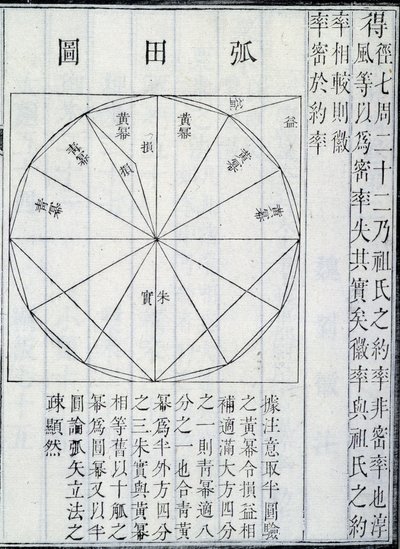 得
徑七周二十二乃祖氏之約率非密率也淳
風等以爲密率失其實矣徽率與祖氏之約
率相較則徽
率密於約率
弧田圖
益
益
黃冪
黃冪
黃冪
損
損
青冪
朱實
據注意取半圓驗
之黃冪令損益相
補適滿大方四分
之一則青冪適八
分之一也合青黃
冪爲半外方四分
之三朱實與黃冪
相等舊以十觚之
冪爲圓冪又以半
圓論弧矢立法之
疎顯然